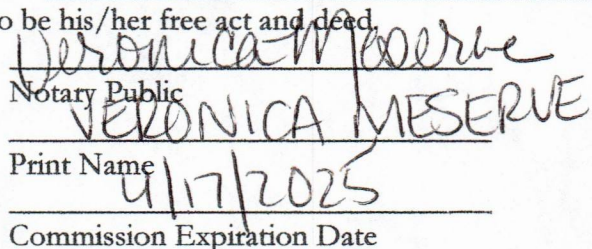 o be his/her free act and deed.
Veronica Meserve
Notary Public
VERONICA MESERVE
Print Name
4/17/2025
Commission Expiration Date